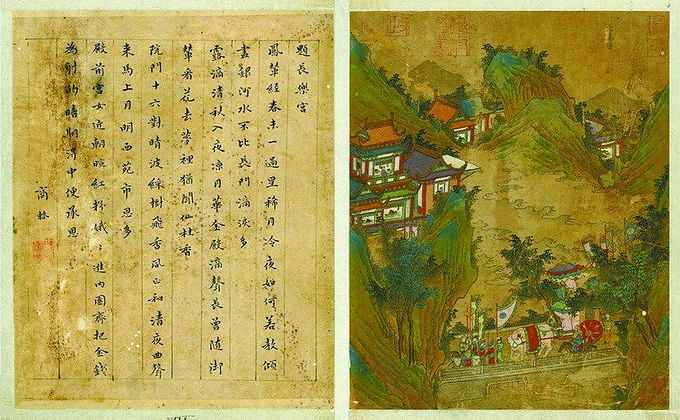 題長樂宮
鳳輦經春未一過星稀月冷夜如何若教傾
盡銀河水不比長門滴淚多
露滴清秋入夜涼月華金殿漏聲長曾隨御
輦看花去夢裡猶聞仙杜香
院門十六對晴波綠樹飛香風正和清夜曲聲
来馬上月明西苑市恩多
殿前宮女近朝暾紅粉娥〻進內園齊把金錢
為射的暗期得中便承恩
商林